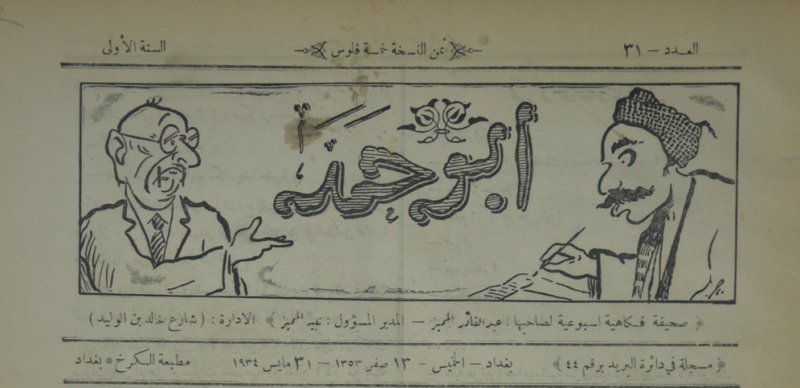 العدد – ٣١ ثمن النسخة خمسة فلوس السنة الأولى
أبو حمد
﴿ صحيفة فكاهية اسبوعية لصاحبها : عبدالقادر المميز – المدير المسؤول : عبيد المميز ﴾ الادارة : ( شارع خالد بن الوليد )
﴿ مسجلة في دائرة البريد برقم ٤٤ ﴾ بغداد – الخميس – ١٣ صفر ١٣٥٣ – ٣١ مايس ١٩٣٤ مطبعة الكرخ * بغداد